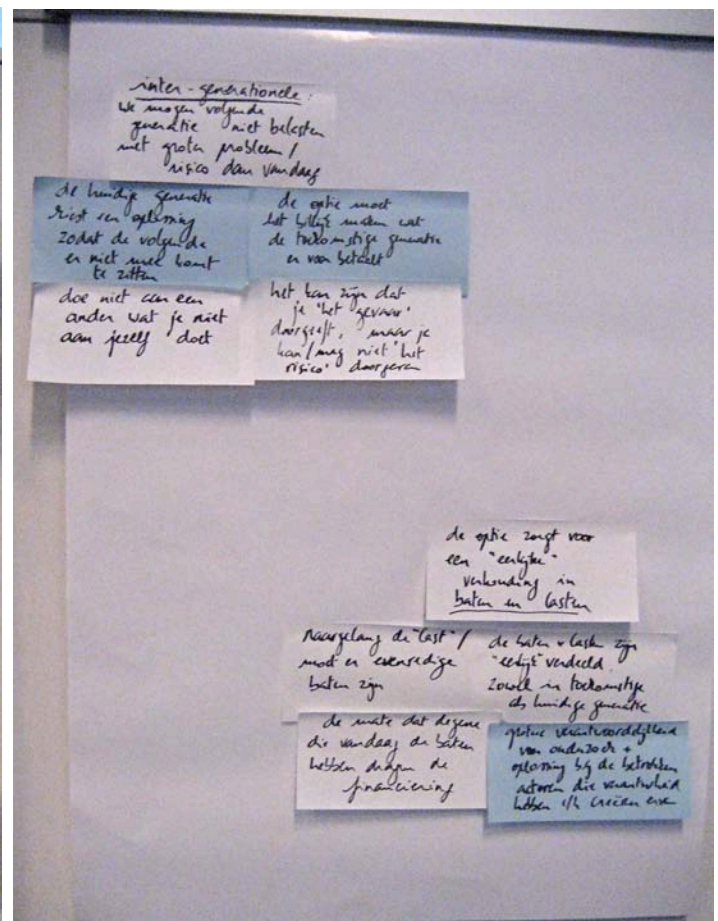 inter-generationele:
We mogen volgende
generatie niet belasten
met groter probleem /
risico dan vandaag
de huidige generatie
kiest een oplossing
zodat de volgende
er niet mee komt
te zitten
de optie moet
het billijk maken wat
de toekomstige generatie
er voor betaalt
doe niet aan een
ander wat je niet
aan jezelf doet
het kan zijn dat
je "het gevaar"
doorgeeft, maar je
kan/mag niet "het
risico" doorgeven
de optie zorgt voor
een "eerlijke"
verhouding in
baten en lasten
Naargelang de "last" /
moet er evenredige
baten zijn
de baten + lasten zijn
"eerlijk" verdeeld.
Zowel in toekomstige
als huidige generatie
de mate dat degene
die vandaag de baten
hebben dragen de
financiering
grotere verantwoordelijkheid
van onderzoek +
oplossing bij de betrokken
actoren die
hebben creëren